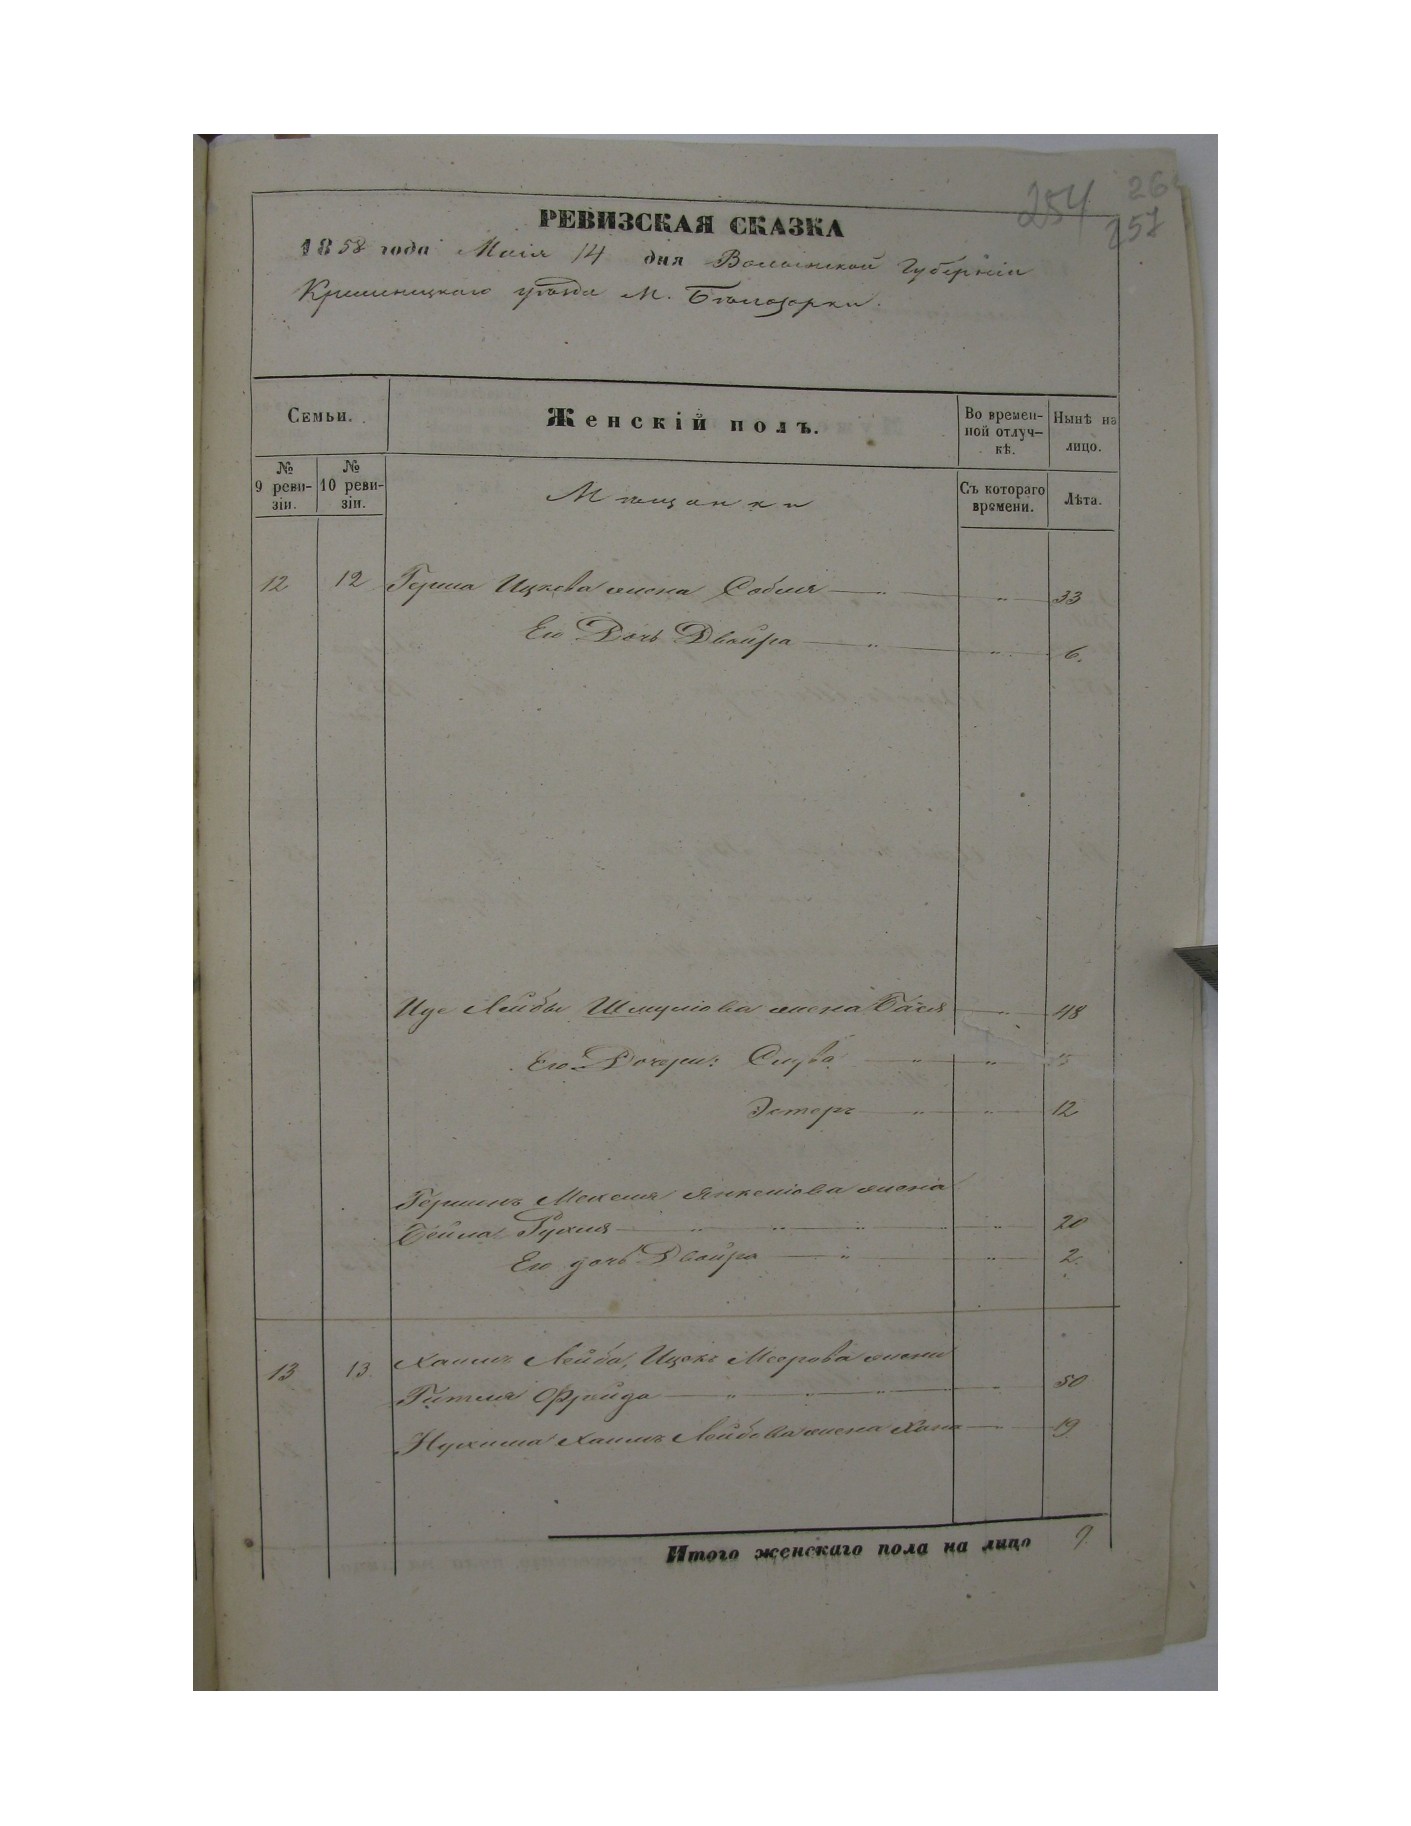 254 26
257
РЕВИЗСКАЯ СКАЗКА
1858 года Маія 14 дня Волынской Губерніи
Кременецкаго уѣзда М. Бѣлозорки.
Семьи.
Женскій полъ.
Во времен-
ной отлуч-
кѣ.
Нынѣ на
лицо.
№
9 реви-
зіи.
№
10 реви-
зіи.
Мѣщанки
Съ котораго
времени.
Лѣта.
12 12 Герша Ицкова жена Собля — " — " — 33
Его Дочь Двойра — " — " — 6.
Иде Лейбы Шмуліова жена Бася — " — 48
Его Дочери: Слува — " — " —
Эстеръ — " — " — 12
Гершкъ Мехеля Янкеліова жена
Бейла Рухля — " — " — " — " — " — 20
Его дочь Двойра — " — " — 2.
13 13. Хаимъ Лейба, Ицокъ Меерова жена
Гитля Фрейда — " — " — " — 50
Нухима Хаимъ Лейбова жена Хана — " — 19
Итого женскаго пола на лицо 9